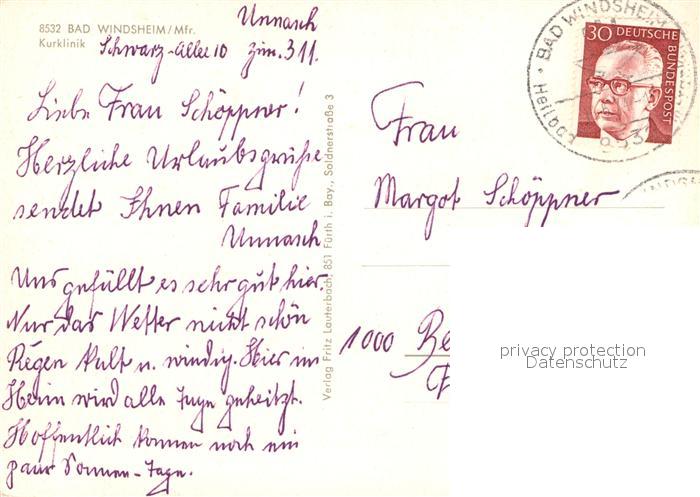 Unnasch
8532 BAD WINDSHEIM/Mfr.
Kurklinik
Schwarz-Allee 10 Zim. 311.
Liebe Frau Schöppner!
Herzliche Urlaubsgrüße
sendet Ihnen Familie
Unnasch
Uns gefällt es sehr gut hier.
Nur das Wetter nicht schön
Regen kalt u. windig. Hier im
Heim wird alle Tage geheitzt.
Hoffentlich kommen noch ein
paar Sonnen-Tage.
Verlag Fritz Lauterbach, 851 Fürth i. Bay., Soldnerstraße 3
BAD WINDSHEIM
Heilbad
853
30 DEUTSCHE BUNDESPOST
Frau
Margot Schöppner
1000 Be
privacy protection
Datenschutz